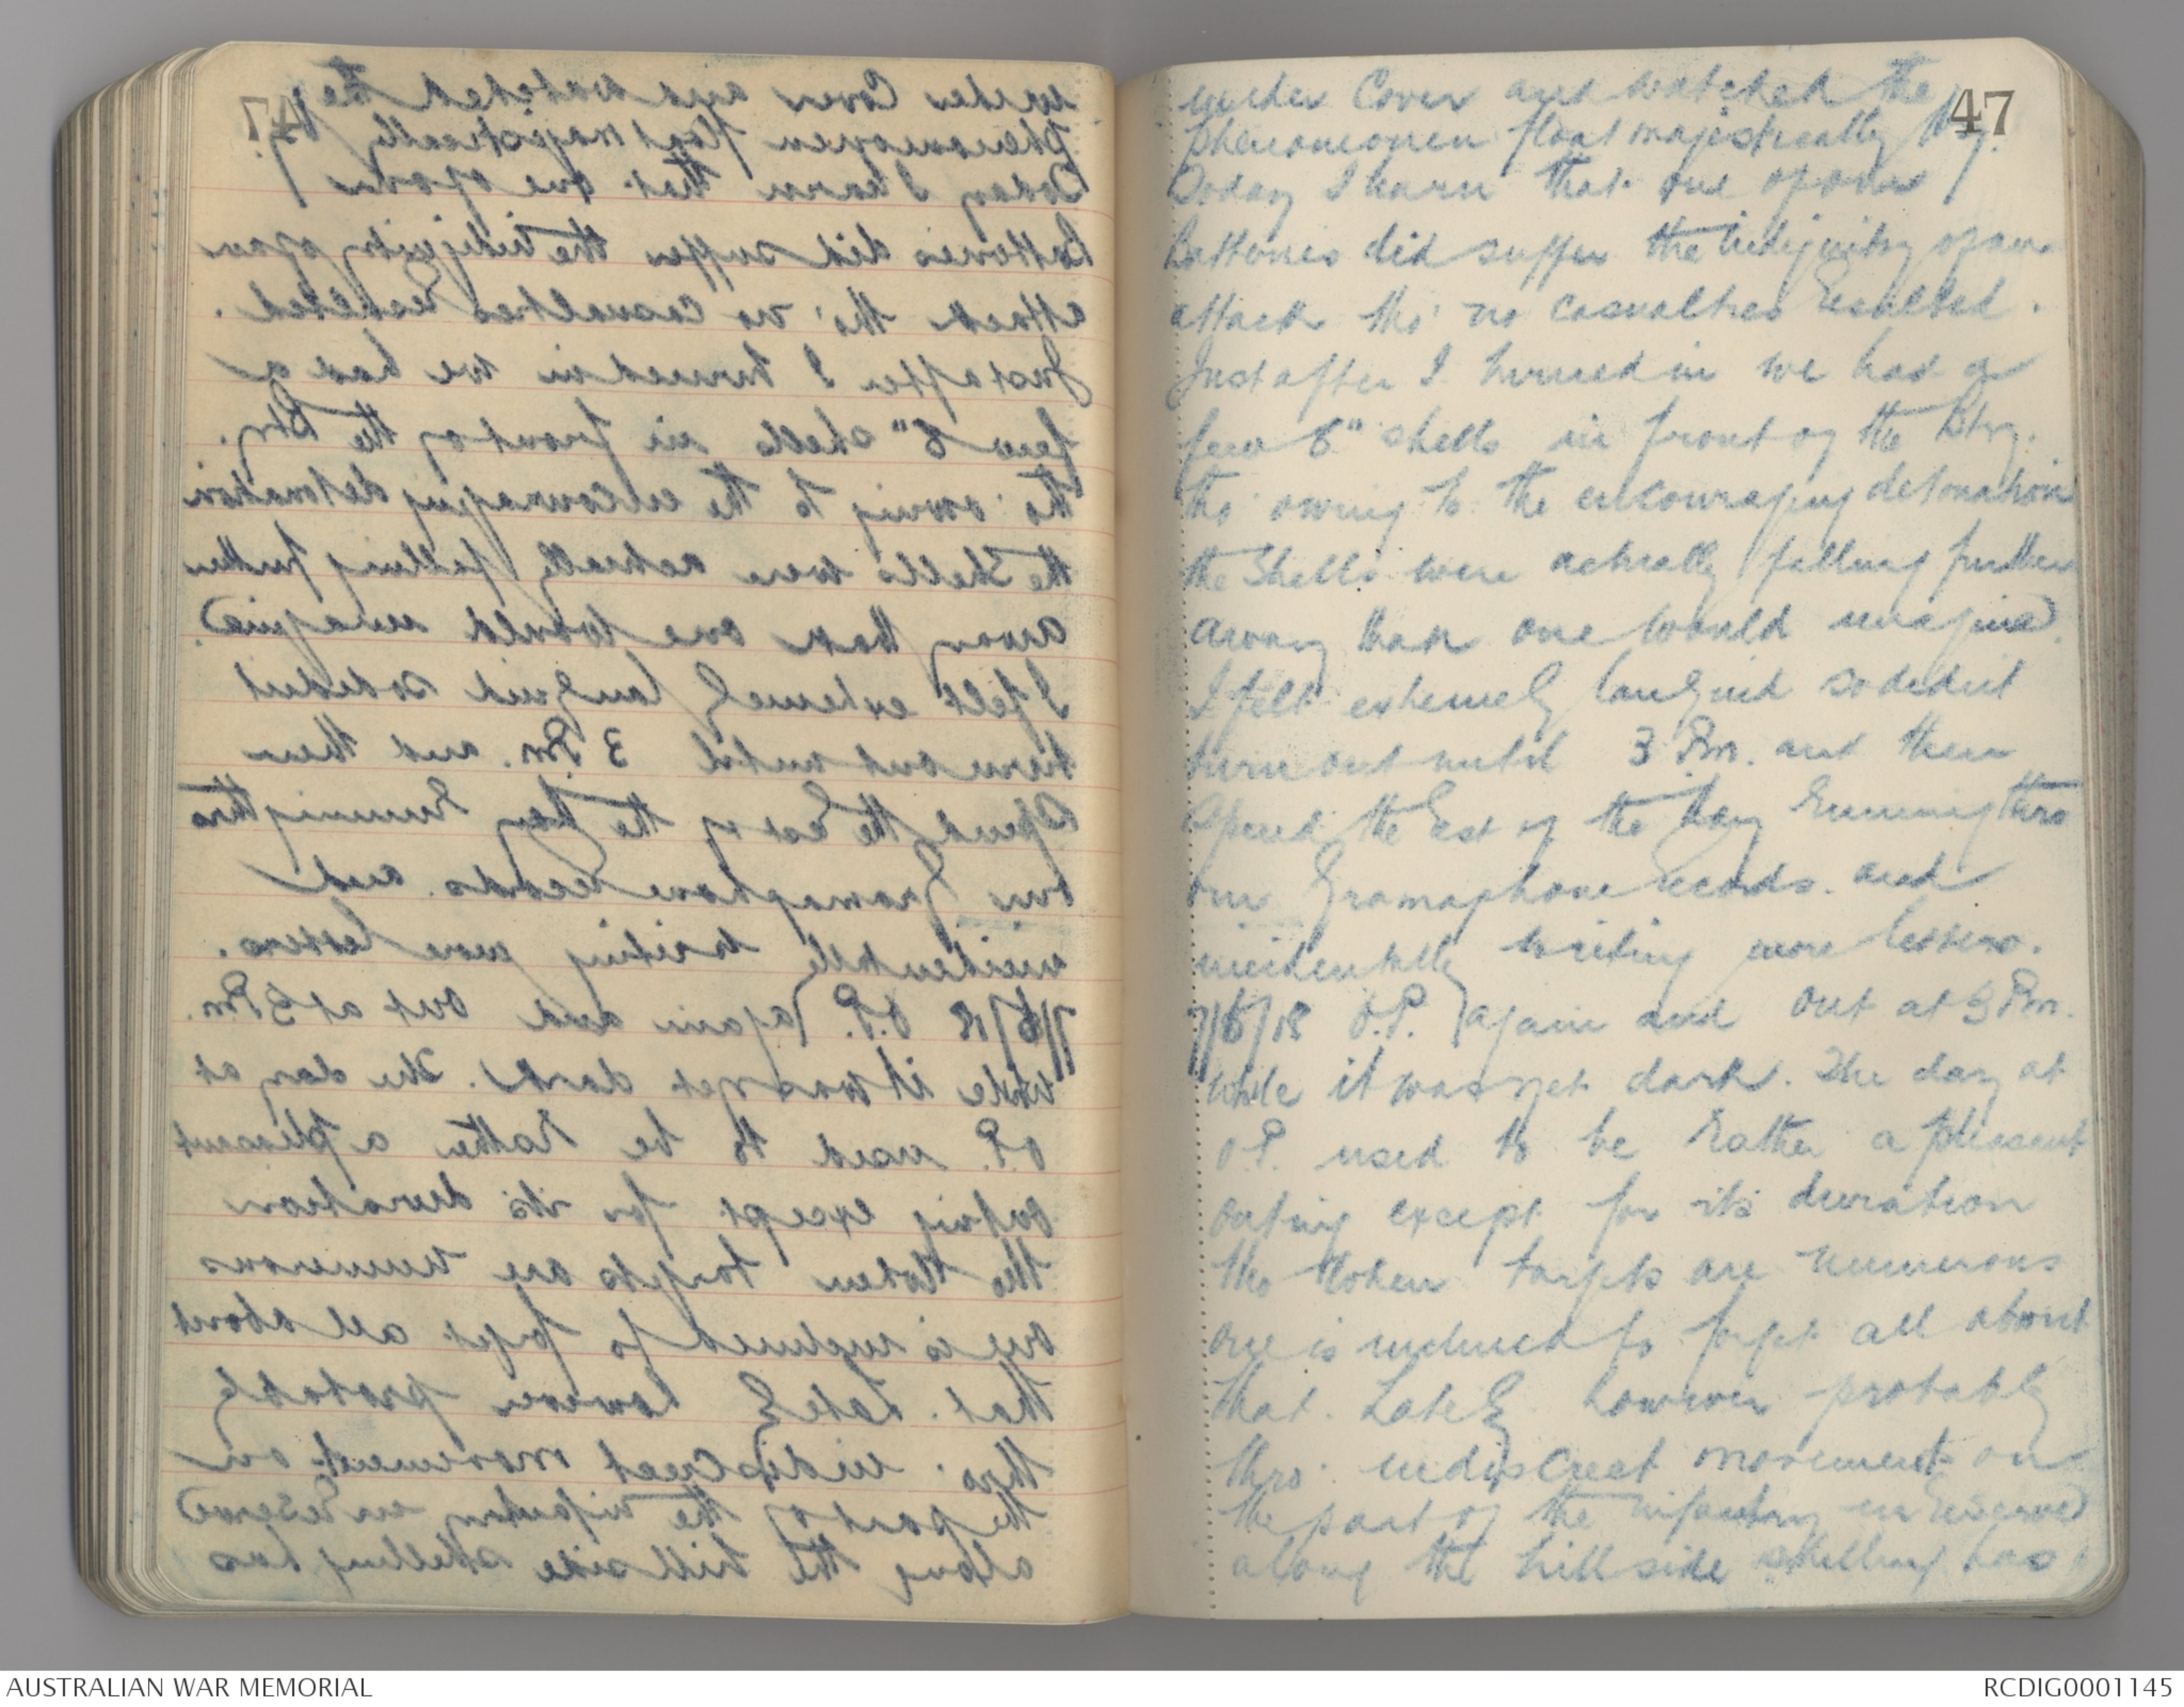 47
under Cover and watched the
phenomonen float majestically by.
Today I learn that one of our
batteries did suffer the indignity of an
attack tho' no casualties resulted.
Just after I turned in we had a
few 6" shells in front of the Bty.
tho' owing to the encouraging detonation
the shells were actually falling further
away than one would imagine.
I felt extremely languid so didnt
turn out until 3 Pm. and then
spend the rest of the day running thro
our Gramaphone records. and
incidentally writing more letters.
7/6/18 O.P. again and out at 3 Pm.
while it was yet dark. The day at
O.P. used to be rather a pleasant
outing except for its duration
tho when targets are numerous
one is inclined to forget all about
that. Lately however probably
thro' indiscreet movement on
the part of the infantry in reserve
along the hill side shelling has
AUSTRALIAN WAR MEMORIAL
RCDIG0001145